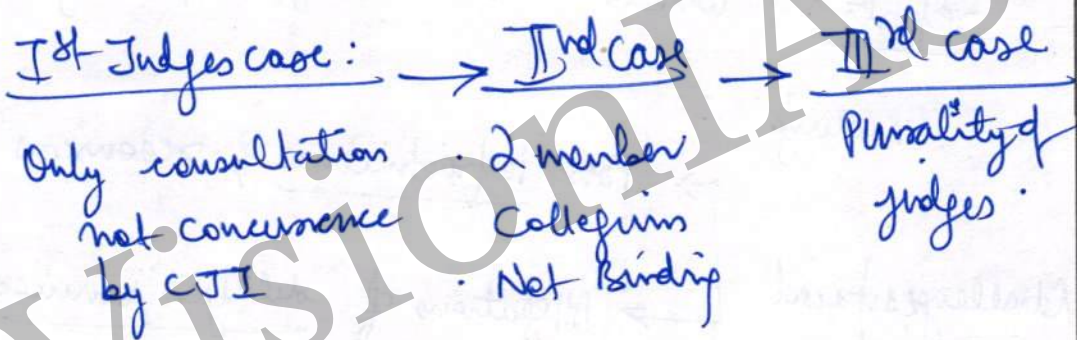 Ist Judges case : → IInd case → IIIrd case
Only consultation
not concurrence
by CJI
· 2 member
Collegium
· Not Binding
Plurality of
judges.
VisionIAS